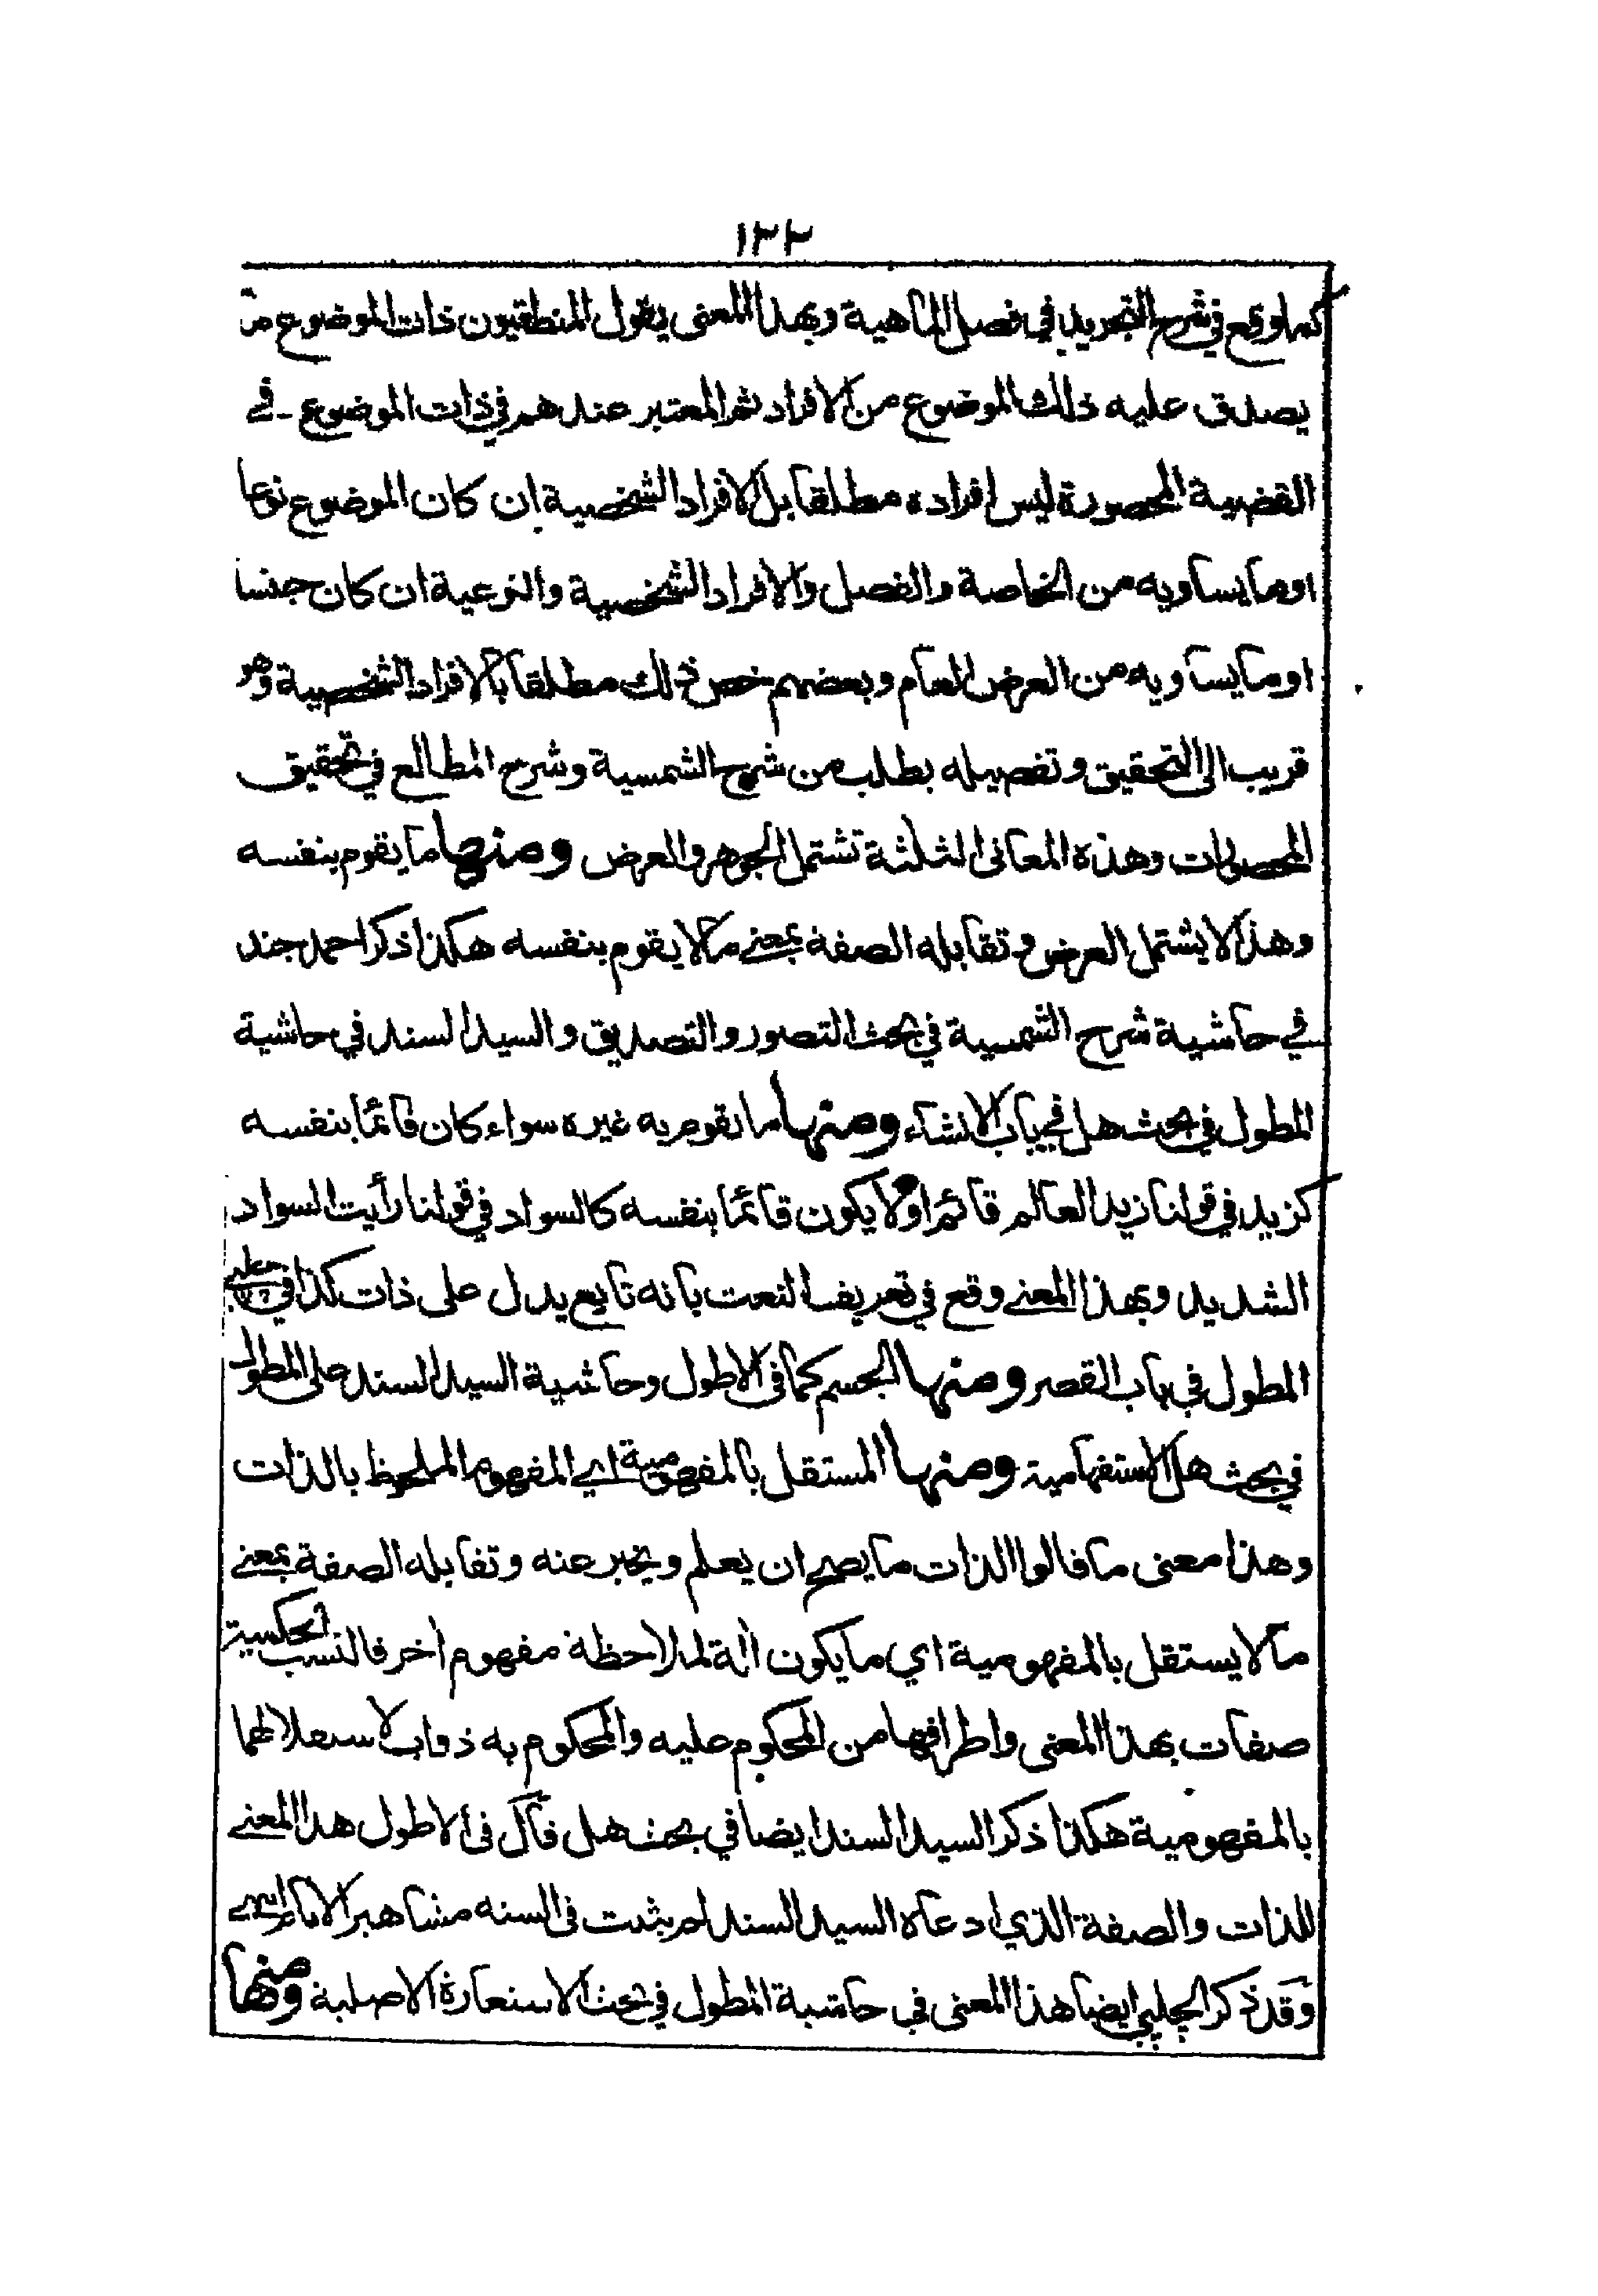 ١٣٣
كما وقع في شرح التجريد في فصل الماهية وبهذا المعنى يقول المنطقيون ذات الموضوع ما
يصدق عليه ذلك الموضوع من الافراد ثم المعتبر عندهم في ذات الموضوع في
القضية المحصورة ليس افراده مطلقا بل الافراد الشخصية ان كان الموضوع نوعا
اوما يساويه من الخاصة والفصل والافراد الشخصية والنوعية ان كان جنسا
اوما يساويه من العرض العام وبعضهم خص ذلك مطلقا بالافراد الشخصية وهو
قريب الى التحقيق وتفصيله يطلب من شرح الشمسية وشرح المطالع في تحقيق
المحصورات وهذه المعانى الثلثة تشتمل الجوهر والعرض ومنها ما يقوم بنفسه
وهذا لا يشتمل العرض وتقابله الصفة بمعنى ما لا يقوم بنفسه هكذا ذكر احمد جند
في حاشية شرح الشمسية في بحث التصور والتصديق والسيد السند في حاشية
المطول في بحث هل في باب الانشاء ومنها ما يقوم به غيره سواء كان قائما بنفسه
كزيد في قولنا زيد العالم قائم اولا يكون قائما بنفسه كالسواد في قولنا رأيت السواد
الشديد وبهذا المعنى وقع في تعريف النعت بانه تابع يدل على ذات كذا في
المطول في باب القصر ومنها الجسم كما فى الاطول وحاشية السيد السند على المطول
في بحث هل الاستفهامية ومنها المستقل بالمفهومية اي المفهوم الملحوظ بالذات
وهذا معنى ما قالوا الذات ما يصح ان يعلم ويخبر عنه وتقابله الصفة بمعنى
ما لا يستقل بالمفهومية اي ما يكون آلة لملاحظة مفهوم آخر فالنسب الحكمية
صفات بهذا المعنى واطرافها من المحكوم عليه والمحكوم به ذوات لاستقلالهما
بالمفهومية هكذا ذكر السيد السند ايضا في بحث هل قال فى الاطول هذا المعنى
للذات والصفة الذي ادعاه السيد السند لم يثبت فى السنة مشاهير الانام اي
وقد ذكر الچلپي ايضا هذا المعنى في حاشية المطول في بحث الاستعارة الاصلية ومنها